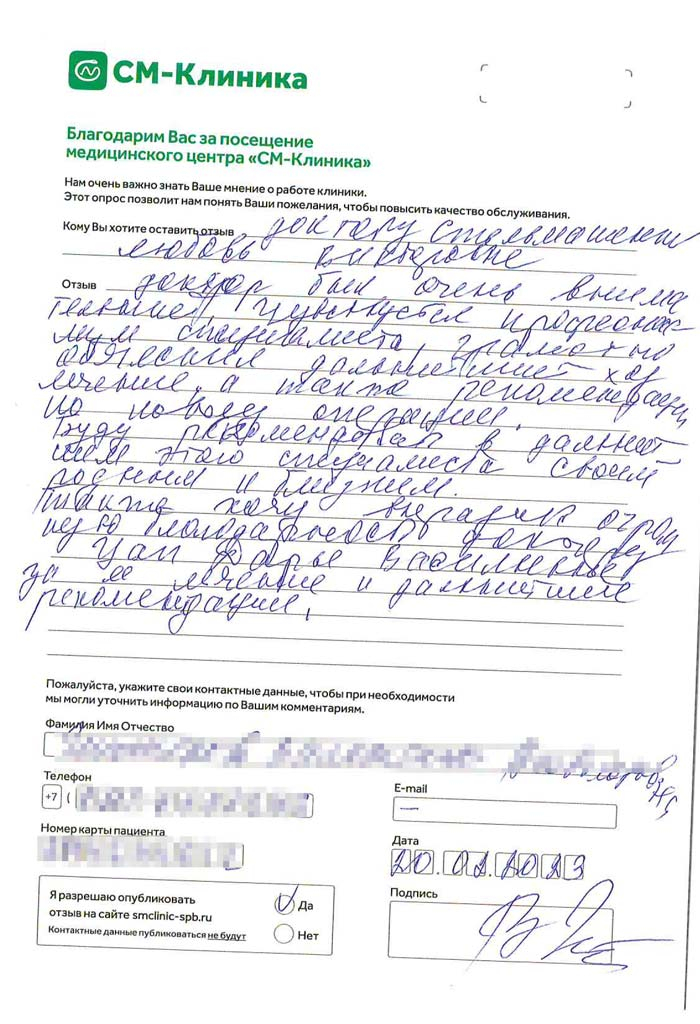 СМ-Клиника
Благодарим Вас за посещение
медицинского центра «СМ-Клиника»
Нам очень важно знать Ваше мнение о работе клиники.
Этот опрос позволит нам понять Ваши пожелания, чтобы повысить качество обслуживания.
Кому Вы хотите оставить отзыв доктору
Любовь Викторовне
Отзыв доктор был очень внима
тельные, чувствуется
специалиста, грамотно
дальнейший ход
лечение, а также рекомендации
по поводу операции.
Буду рекомендовать в дальней
шем этого специалиста своим
родным и близким.
Также хочу выразить огром
ную благодарность доктору
Цай Дарье Васильевне
за ее лечение и дальнейшие
рекомендации.
Пожалуйста, укажите свои контактные данные, чтобы при необходимости
мы могли уточнить информацию по Вашим комментариям.
Фамилия Имя Отчество
Телефон
+7 (
E-mail
—
Номер карты пациента
Дата
20.02.2023
Я разрешаю опубликовать
отзыв на сайте smclinic-spb.ru
Контактные данные публиковаться не будут
Да
Нет
Подпись